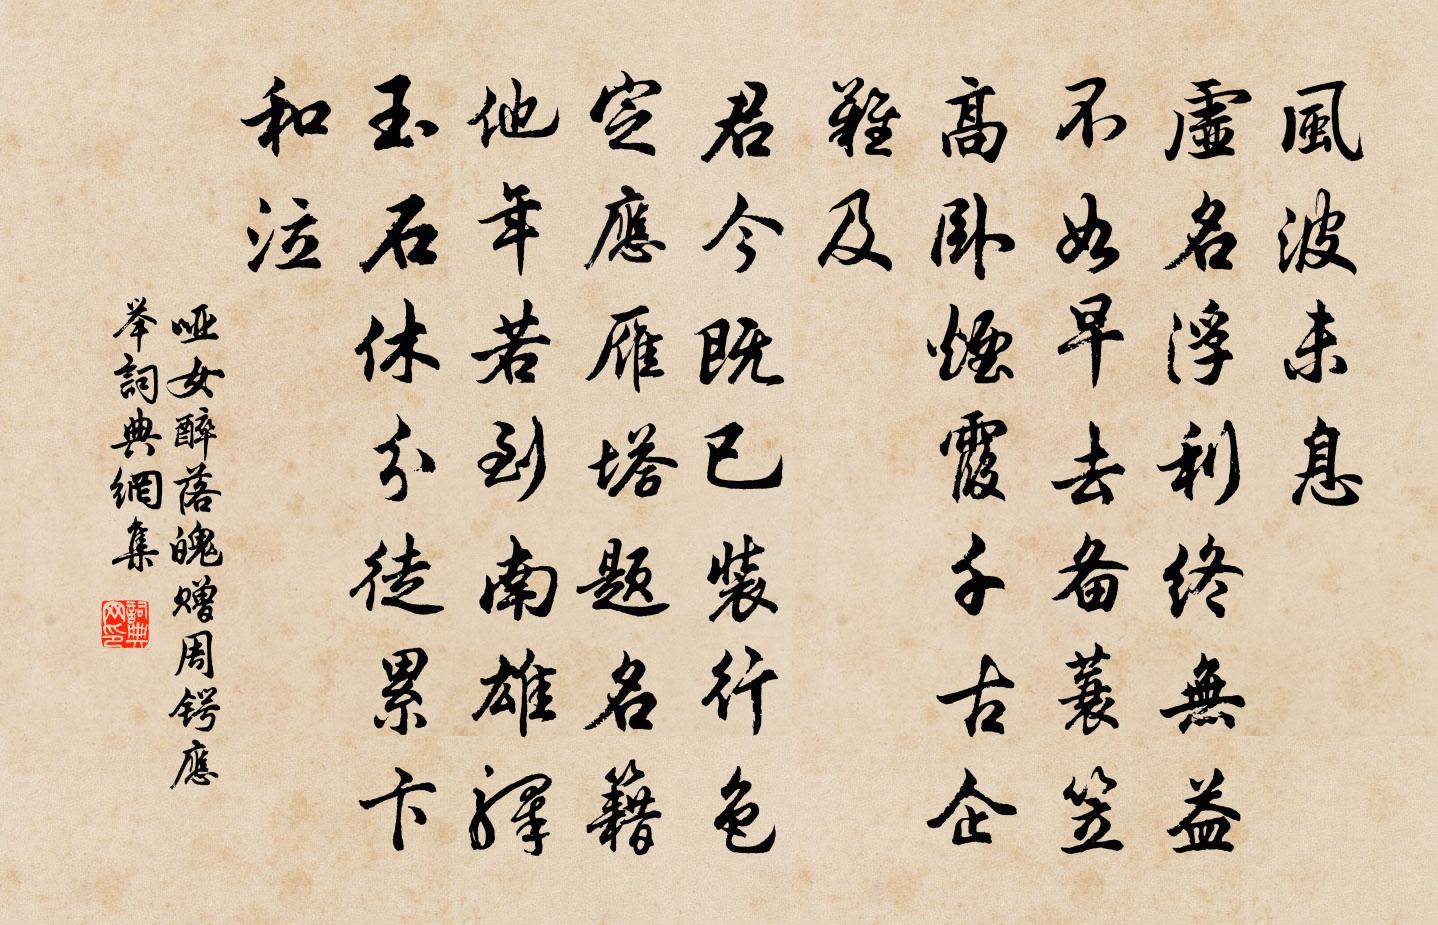 風波未息
虛名浮利終無益
不如早去备蓑笠
高卧煙霞千古企
難及
君今既已裝行色
定應雁塔題名籍
他年若到南雄驛
玉石休分徒累卞
和泣
哑女醉落魄赠周锷應
举詞典網集
詞典网印